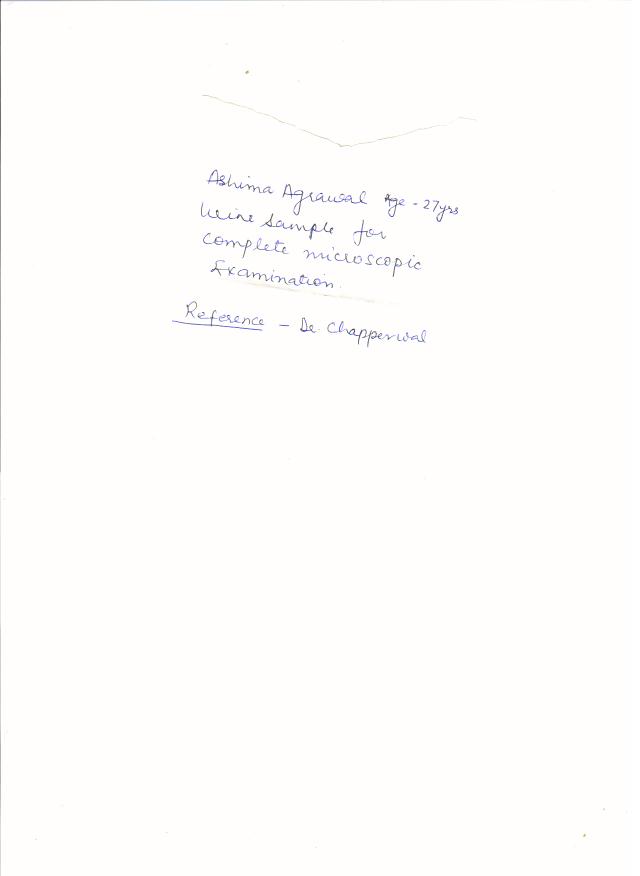 Ashima Agrawal Age - 27yrs
Urine Sample for
complete microscopic
Examination.
Reference - Dr. Chapperwal